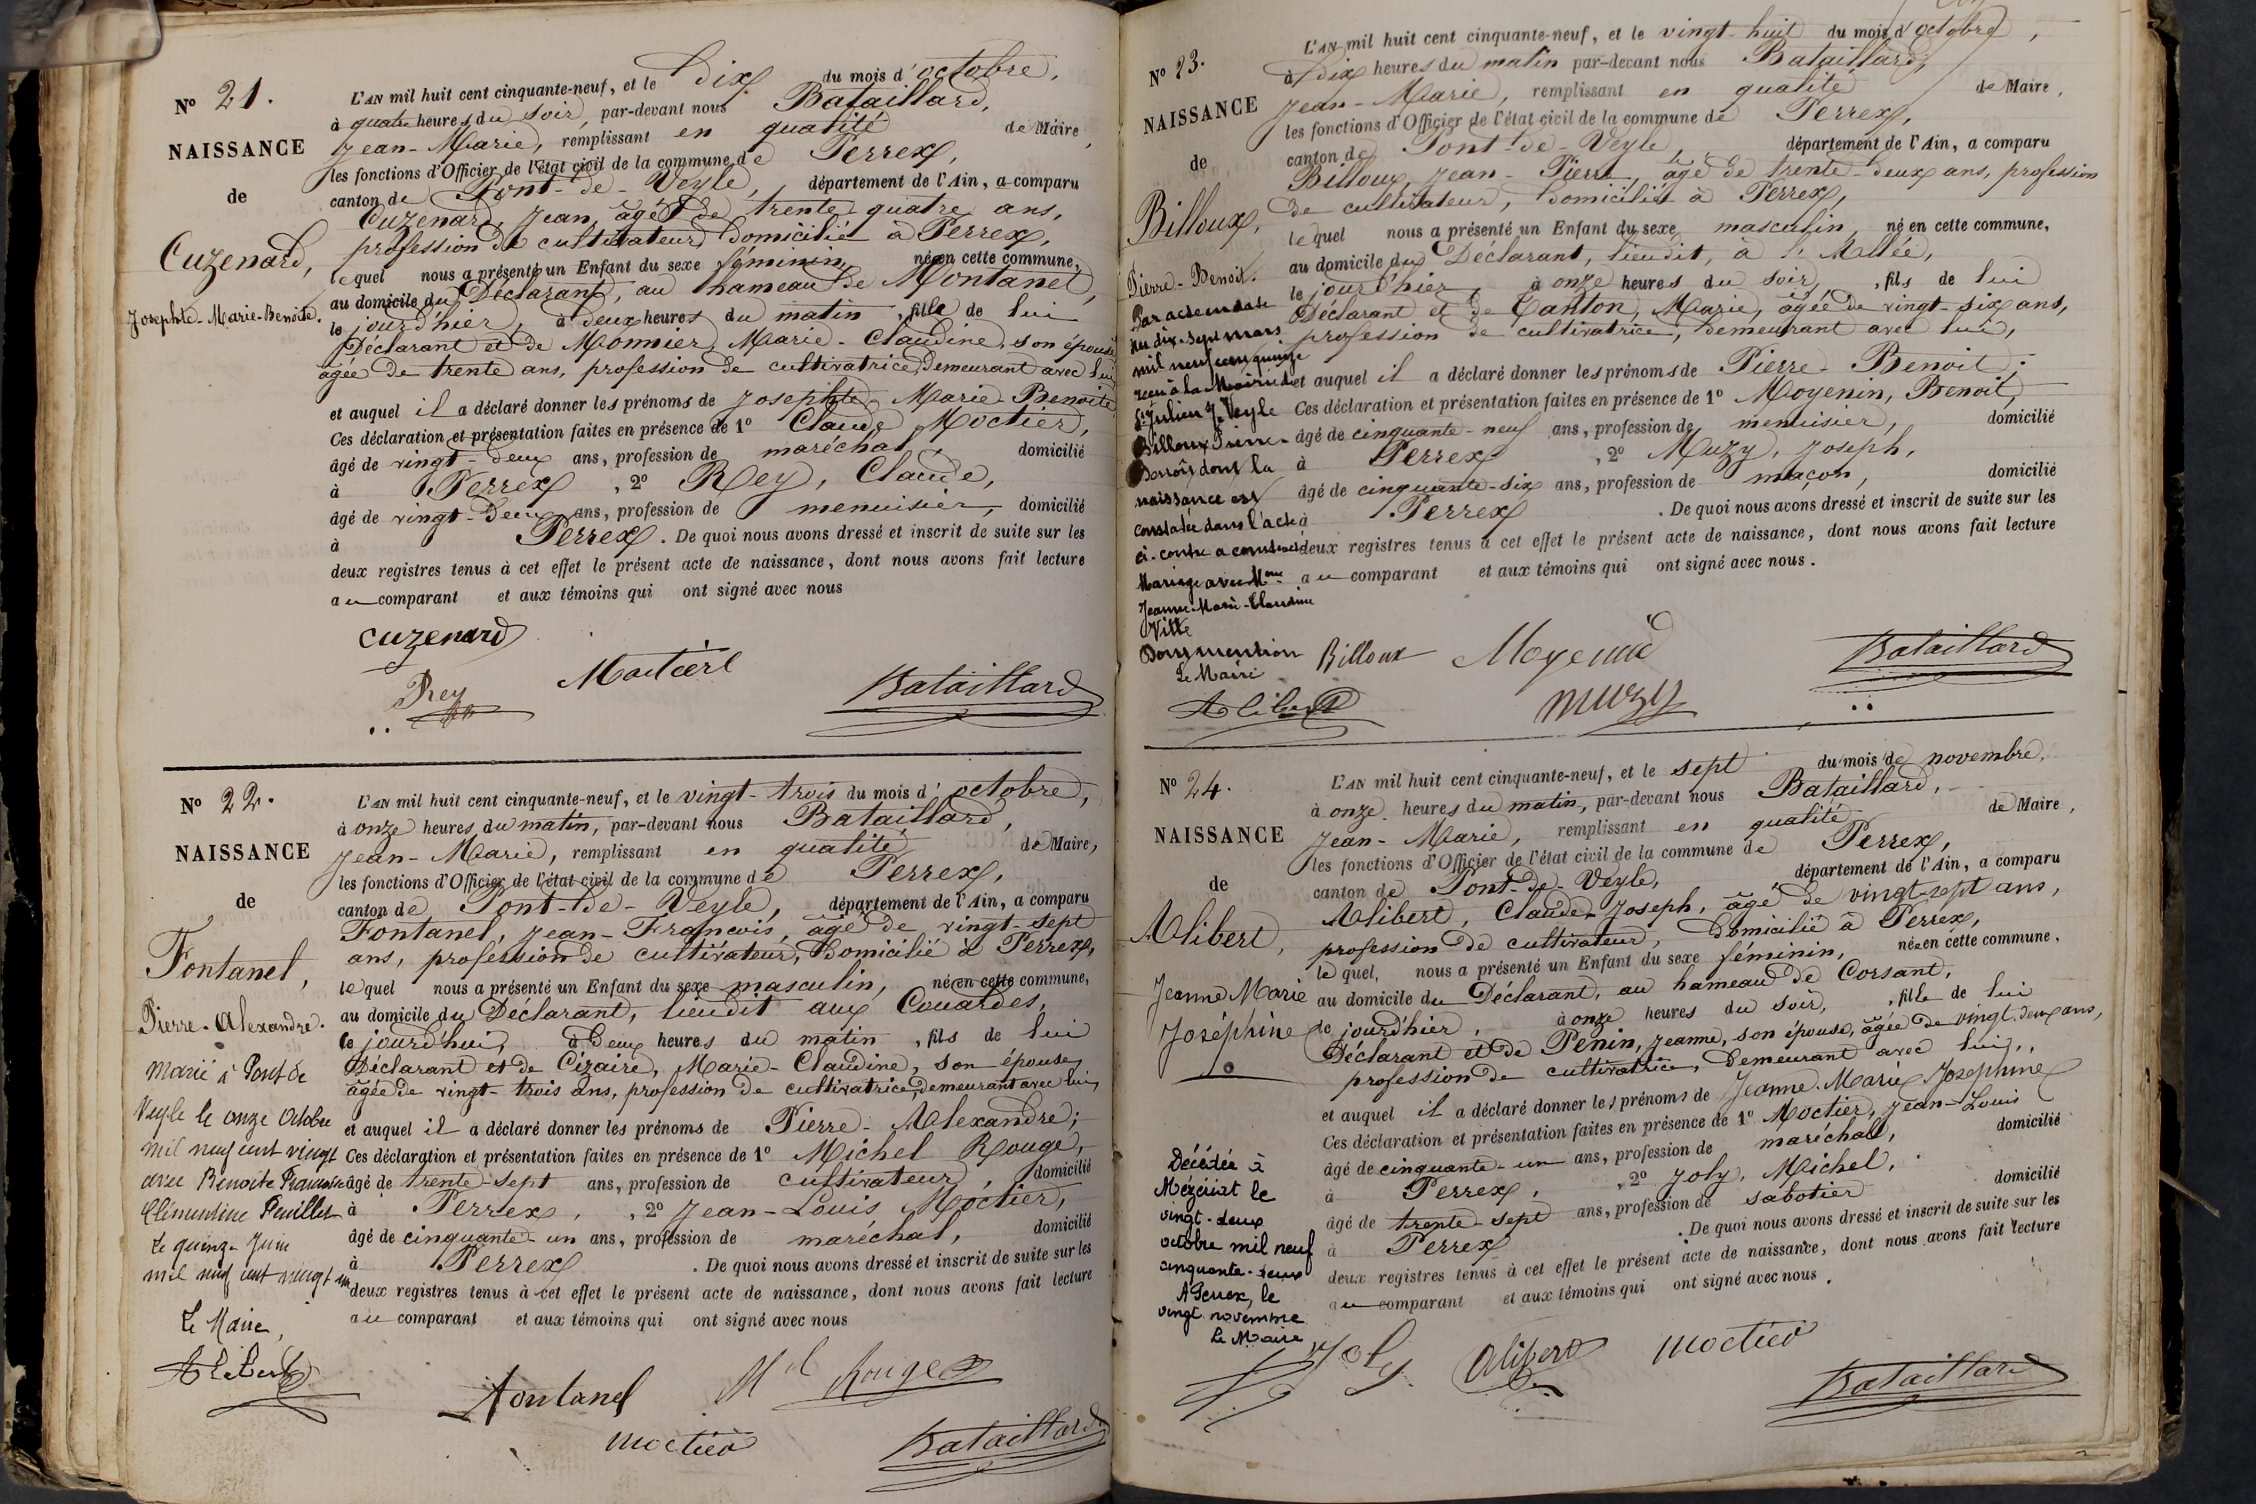 N° 21.
NAISSANCE
de
Cuzenard,
Josephte-Marie-Benoite.
L'AN mil huit cent cinquante-neuf, et le dix du mois d'octobre,
à quatre heures du soir, par-devant nous Bataillard,
Jean-Marie, remplissant en qualité de Maire,
les fonctions d'Officier de l'état civil de la commune de Perrex,
canton de Pont-de-Veyle, département de l'Ain, a comparu
Cuzenard, Jean, âgé de trente quatre ans,
profession de cultivateur domicilié à Perrex,
lequel nous a présenté un Enfant du sexe féminin, née en cette commune,
au domicile du Déclarant, au hameau de Montanet,
le jour d'hier, à deux heures du matin, fille de lui
Déclarant et de Monnier, Marie-Claudine, son épouse
âgée de trente ans, profession de cultivatrice, demeurant avec lui
et auquel il a déclaré donner les prénoms de Josephte Marie Benoite
Ces déclaration et présentation faites en présence de 1° Claude Moctier,
âgé de vingt-deux ans, profession de maréchal, domicilié
à Perrex, 2° Rey, Claude,
âgé de vingt-deux ans, profession de menuisier, domicilié
à Perrex. De quoi nous avons dressé et inscrit de suite sur les
deux registres tenus à cet effet le présent acte de naissance, dont nous avons fait lecture
au comparant et aux témoins qui ont signé avec nous
cuzenard
Rey
Bataillard
N° 22.
NAISSANCE
de
Fontanel,
Pierre-Alexandre.
Marié à Pont de
Veyle le onze Octobre
mil neuf cent vingt
avec Benoite Françoise
Clémentine Feuillet
Le quinze Juin
mil neuf cent vingt un
Le Maire,
Alibert
L'AN mil huit cent cinquante-neuf, et le vingt-trois du mois d'octobre,
à onze heures du matin, par-devant nous Bataillard,
Jean-Marie, remplissant en qualité de Maire,
les fonctions d'Officier de l'état civil de la commune de Perrex,
canton de Pont-de-Veyle, département de l'Ain, a comparu
Fontanel, Jean-François, âgé de vingt-sept
ans, profession de cultivateur, domicilié à Perrex,
lequel nous a présenté un Enfant du sexe masculin, né en cette commune,
au domicile du Déclarant, lieudit aux Couardes,
le jourd'hui, à deux heures du matin, fils de lui
Déclarant et de Cizaire, Marie-Claudine, son épouse
âgée de vingt-trois ans, profession de cultivatrice, demeurant avec lui,
et auquel il a déclaré donner les prénoms de Pierre-Alexandre;
Ces déclaration et présentation faites en présence de 1° Michel Rouge,
âgé de trente-sept ans, profession de cultivateur, domicilié
à Perrex, 2° Jean-Louis Moctier,
âgé de cinquante-un ans, profession de maréchal, domicilié
à Perrex. De quoi nous avons dressé et inscrit de suite sur les
deux registres tenus à cet effet le présent acte de naissance, dont nous avons fait lecture
au comparant et aux témoins qui ont signé avec nous
fontanel Mel Rouge
moctier Bataillard
N° 23.
NAISSANCE
de
Billoux,
Pierre-Benoit.
Par acte en date
du dix-sept mars
mil neuf cent quinze
reçu à la Mairie de
St Julien s/ Veyle
Billoux Pierre-
Benoît dont la
naissance est
constatée dans l'acte
ci-contre a contracté
Mariage avec Mme
Jeanne-Marie-Claudine
Dont mention
Le Maire
Alibert
L'AN mil huit cent cinquante-neuf, et le vingt-huit du mois d'octobre,
à dix heures du matin par-devant nous Bataillard,
Jean-Marie, remplissant en qualité de Maire,
les fonctions d'Officier de l'état civil de la commune de Perrex,
canton de Pont-de-Veyle, département de l'Ain, a comparu
Billoux, Jean-Pierre, âgé de trente-deux ans, profession
de cultivateur, domicilié à Perrex,
lequel nous a présenté un Enfant du sexe masculin, né en cette commune,
au domicile du Déclarant, lieudit, à
le jour d'hier, à onze heures du soir, fils de lui
Déclarant et de Canton, Marie, âgée de vingt-six ans,
profession de cultivatrice, demeurant avec lui,
et auquel il a déclaré donner les prénoms de Pierre-Benoit;
Ces déclaration et présentation faites en présence de 1° Moyenin, Benoit,
âgé de cinquante-neuf ans, profession de menuisier, domicilié
à Perrex, 2° Muzy, Joseph,
âgé de cinquante-six ans, profession de maçon, domicilié
à Perrex. De quoi nous avons dressé et inscrit de suite sur les
deux registres tenus à cet effet le présent acte de naissance, dont nous avons fait lecture
au comparant et aux témoins qui ont signé avec nous.
Billoux Bataillard
muzy
N° 24.
NAISSANCE
de
Alibert,
Jeanne Marie
Joséphine
Décédée à
Mézériat le
vingt-deux
octobre mil neuf
cinquante-deux
A Perrex, le
vingt novembre
Le Maire
L'AN mil huit cent cinquante-neuf, et le sept du mois de novembre,
à onze heures du matin, par-devant nous Bataillard,
Jean-Marie, remplissant en qualité de Maire,
les fonctions d'Officier de l'état civil de la commune de Perrex,
canton de Pont-de-Veyle, département de l'Ain, a comparu
Alibert, Claude-Joseph, âgé de vingt-sept ans,
profession de cultivateur, domicilié à Perrex,
lequel, nous a présenté un Enfant du sexe féminin, née en cette commune,
au domicile du Déclarant, au hameau de Corsant,
le jour d'hier, à onze heures du soir, fille de lui
Déclarant et de Penin, Jeanne, son épouse, âgée de vingt-deux ans,
profession de cultivatrice, demeurant avec lui,
et auquel il a déclaré donner les prénoms de Jeanne-Marie Josephine
Ces déclaration et présentation faites en présence de 1° Moctier, Jean-Louis
âgé de cinquante-un ans, profession de maréchal, domicilié
à Perrex, 2° Joly, Michel,
âgé de trente-sept ans, profession de sabotier domicilié
à Perrex. De quoi nous avons dressé et inscrit de suite sur les
deux registres tenus à cet effet le présent acte de naissance, dont nous avons fait lecture
au comparant et aux témoins qui ont signé avec nous.
Joly alibert moctier
Bataillard